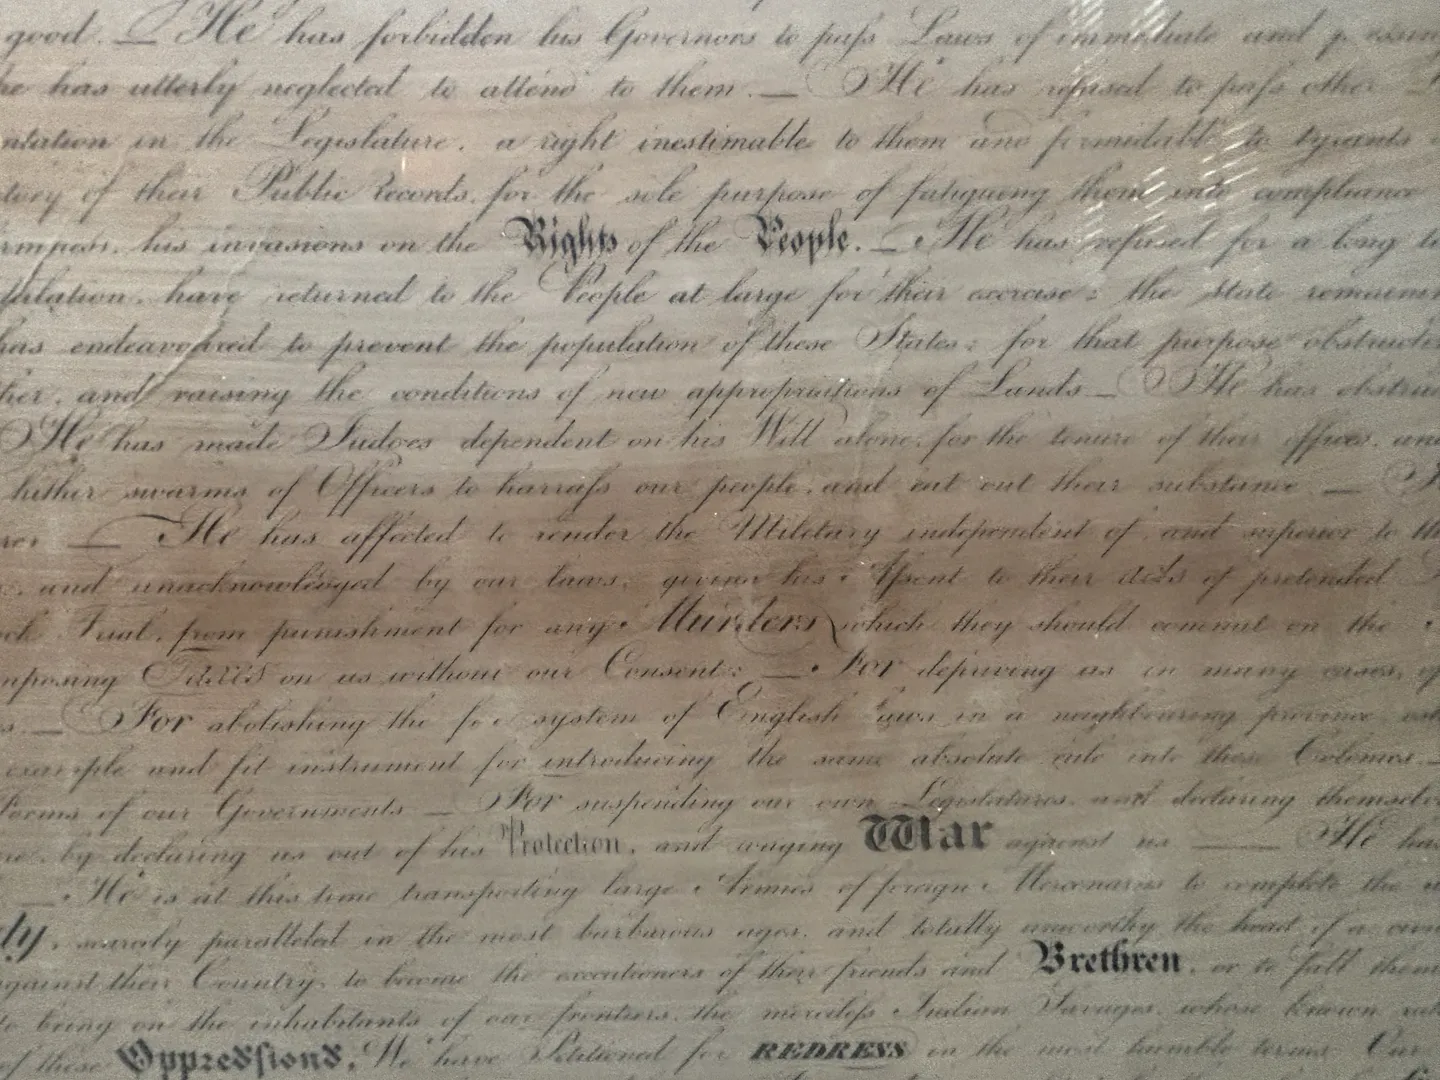 good. — He has forbidden his Governors to paſs Laws of immediate and p essing
he has utterly neglected to attend to them. — He has refused to paſs other
ntation in the Legislature, a right inestimable to them and formidable to tyrants
tory of their Public Records, for the sole purpose of fatiguing them into compliance
his invasions on the Rights of the People. — He has refused for a long
have returned to the People at large for their exercise; the State remainin
has endeavoured to prevent the population of these States; for that purpose obstructin
her, and raising the conditions of new appropriations of Lands — He has obstruc
He has made Judges dependent on his Will alone, for the tenure of their offices, and
hither swarms of Officers to harraſs our people, and eat out their substance. —
— He has affected to render the Military independent of and superior to the
and unacknowledged by our laws; giving his Aſsent to their Acts of pretended
ck Trial, from punishment for any Murders which they should commit on the
mposing Taxes on us without our Consent: — For depriving us in many cases, of
s. — For abolishing the free system of English Laws in a neighbouring province, est
example and fit instrument for introducing the same absolute rule into these Colonies —
Forms of our Governments — For suspending our own Legislatures, and declaring themselv
re, by declaring us out of his Protection, and waging War against us — He has
— He is at this time transporting large Armies of foreign Mercenaries to complete the
ty, scarcely paralleled in the most barbarous ages, and totally unworthy the head of a civi
against their Country, to become the executioners of their friends and Brethren, or to fall them
to bring on the inhabitants of our frontiers, the mercileſs Indian Savages, whose known rul
of these Oppressions, We have Petitioned for REDRESS in the most humble terms: Our